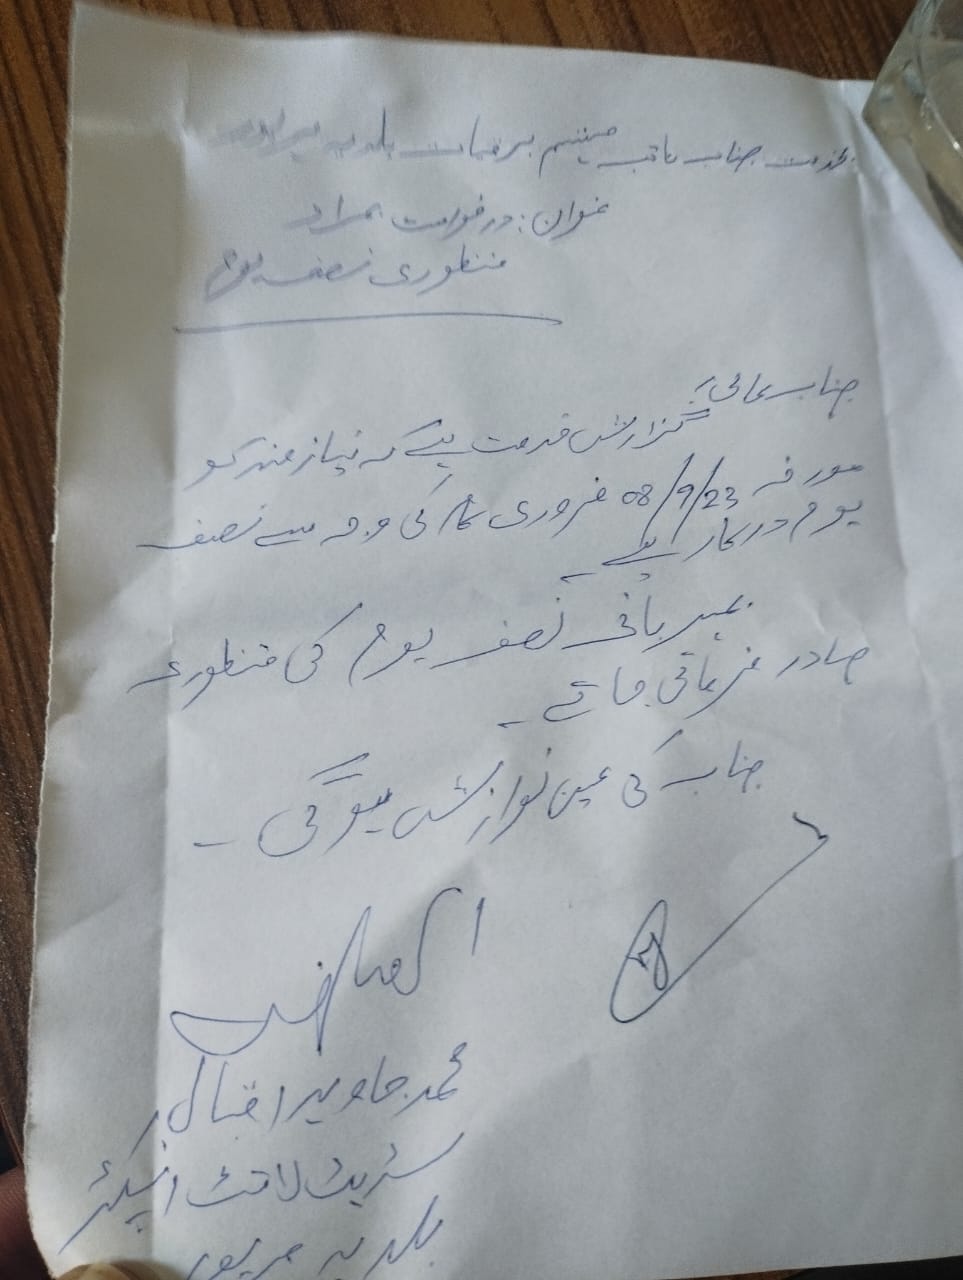 بخدمت جناب نائب مہتمم برقیات بلدیہ
عنوان: درخواست بمراد
منظوری نصف یوم
جناب عالی!
گزارش خدمت ہے کہ نیازمند کو
مورخہ 08/9/23 ضروری کام کی وجہ سے نصف
یوم درکار ہے۔
بمہربانی نصف یوم کی منظوری
صادر فرمائی جائے۔
جناب کی عین نوازش ہوگی۔
محمد جاوید اقبال
سٹریٹ لائٹ انسپکٹر
بلدیہ میرپور